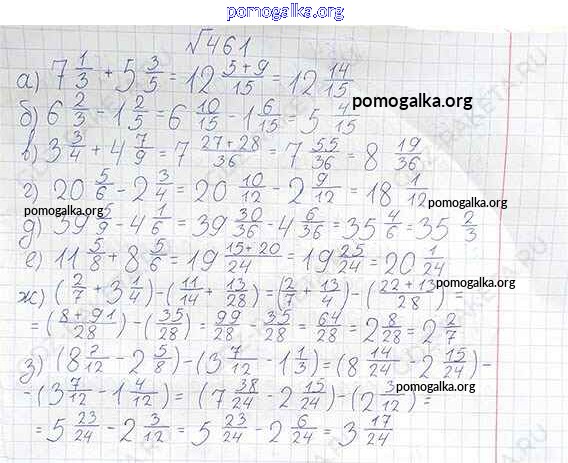 pomogalka.org
√461
а) 7 1/3 + 5 3/5 = 12 (5+9)/15 = 12 14/15
б) 6 2/3 - 1 2/5 = 6 10/15 - 1 6/15 = 5 4/15
pomogalka.org
в) 3 3/4 + 4 7/9 = 7 (27+28)/36 = 7 55/36 = 8 19/36
г) 20 5/6 - 2 3/4 = 20 10/12 - 2 9/12 = 18 1/12
pomogalka.org
pomogalka.org
д) 39 5/9 - 4 1/6 = 39 30/36 - 4 6/36 = 35 4/6 = 35 2/3
е) 11 5/8 + 8 5/6 = 19 (15+20)/24 = 19 25/24 = 20 1/24
pomogalka.org
ж) (2/7 + 3 1/4) - (11/14 + 13/28) = (2/7 + 13/4) - ((22+13)/28) =
= ((8+91)/28) - (35/28) = 99/28 - 35/28 = 64/28 = 2 8/28 = 2 2/7
з) (8 7/12 - 2 5/8) - (3 7/12 - 1 1/3) = (8 14/24 - 2 15/24) -
- (3 7/12 - 1 4/12) = (7 38/24 - 2 15/24) - (2 3/12) =
pomogalka.org
= 5 23/24 - 2 3/12 = 5 23/24 - 2 6/24 = 3 17/24